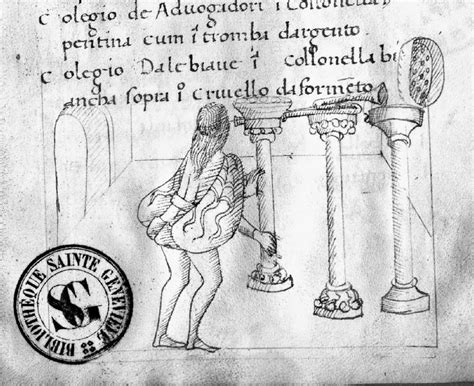 Colegio de Advogadori i Collonella
pentina cum i tromba dargento.
Colegio Dalebiave i Collonella bi
ancha sopra i crivello da formēto
BIBLIOTHEQUE SAINTE GENEVIEVE
SG